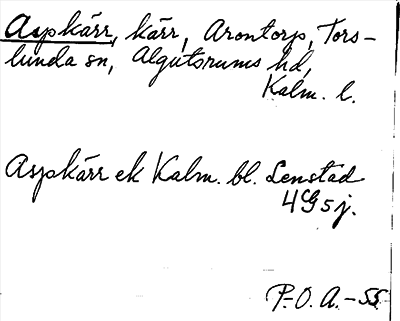 Aspkärr, kärr, Arontorp, Tors-
lunda sn, Algutsrums hd,
Kalm. l.
Aspkärr ek Kalm. bl. Lenstad
4G5j.
P.O.A.-55